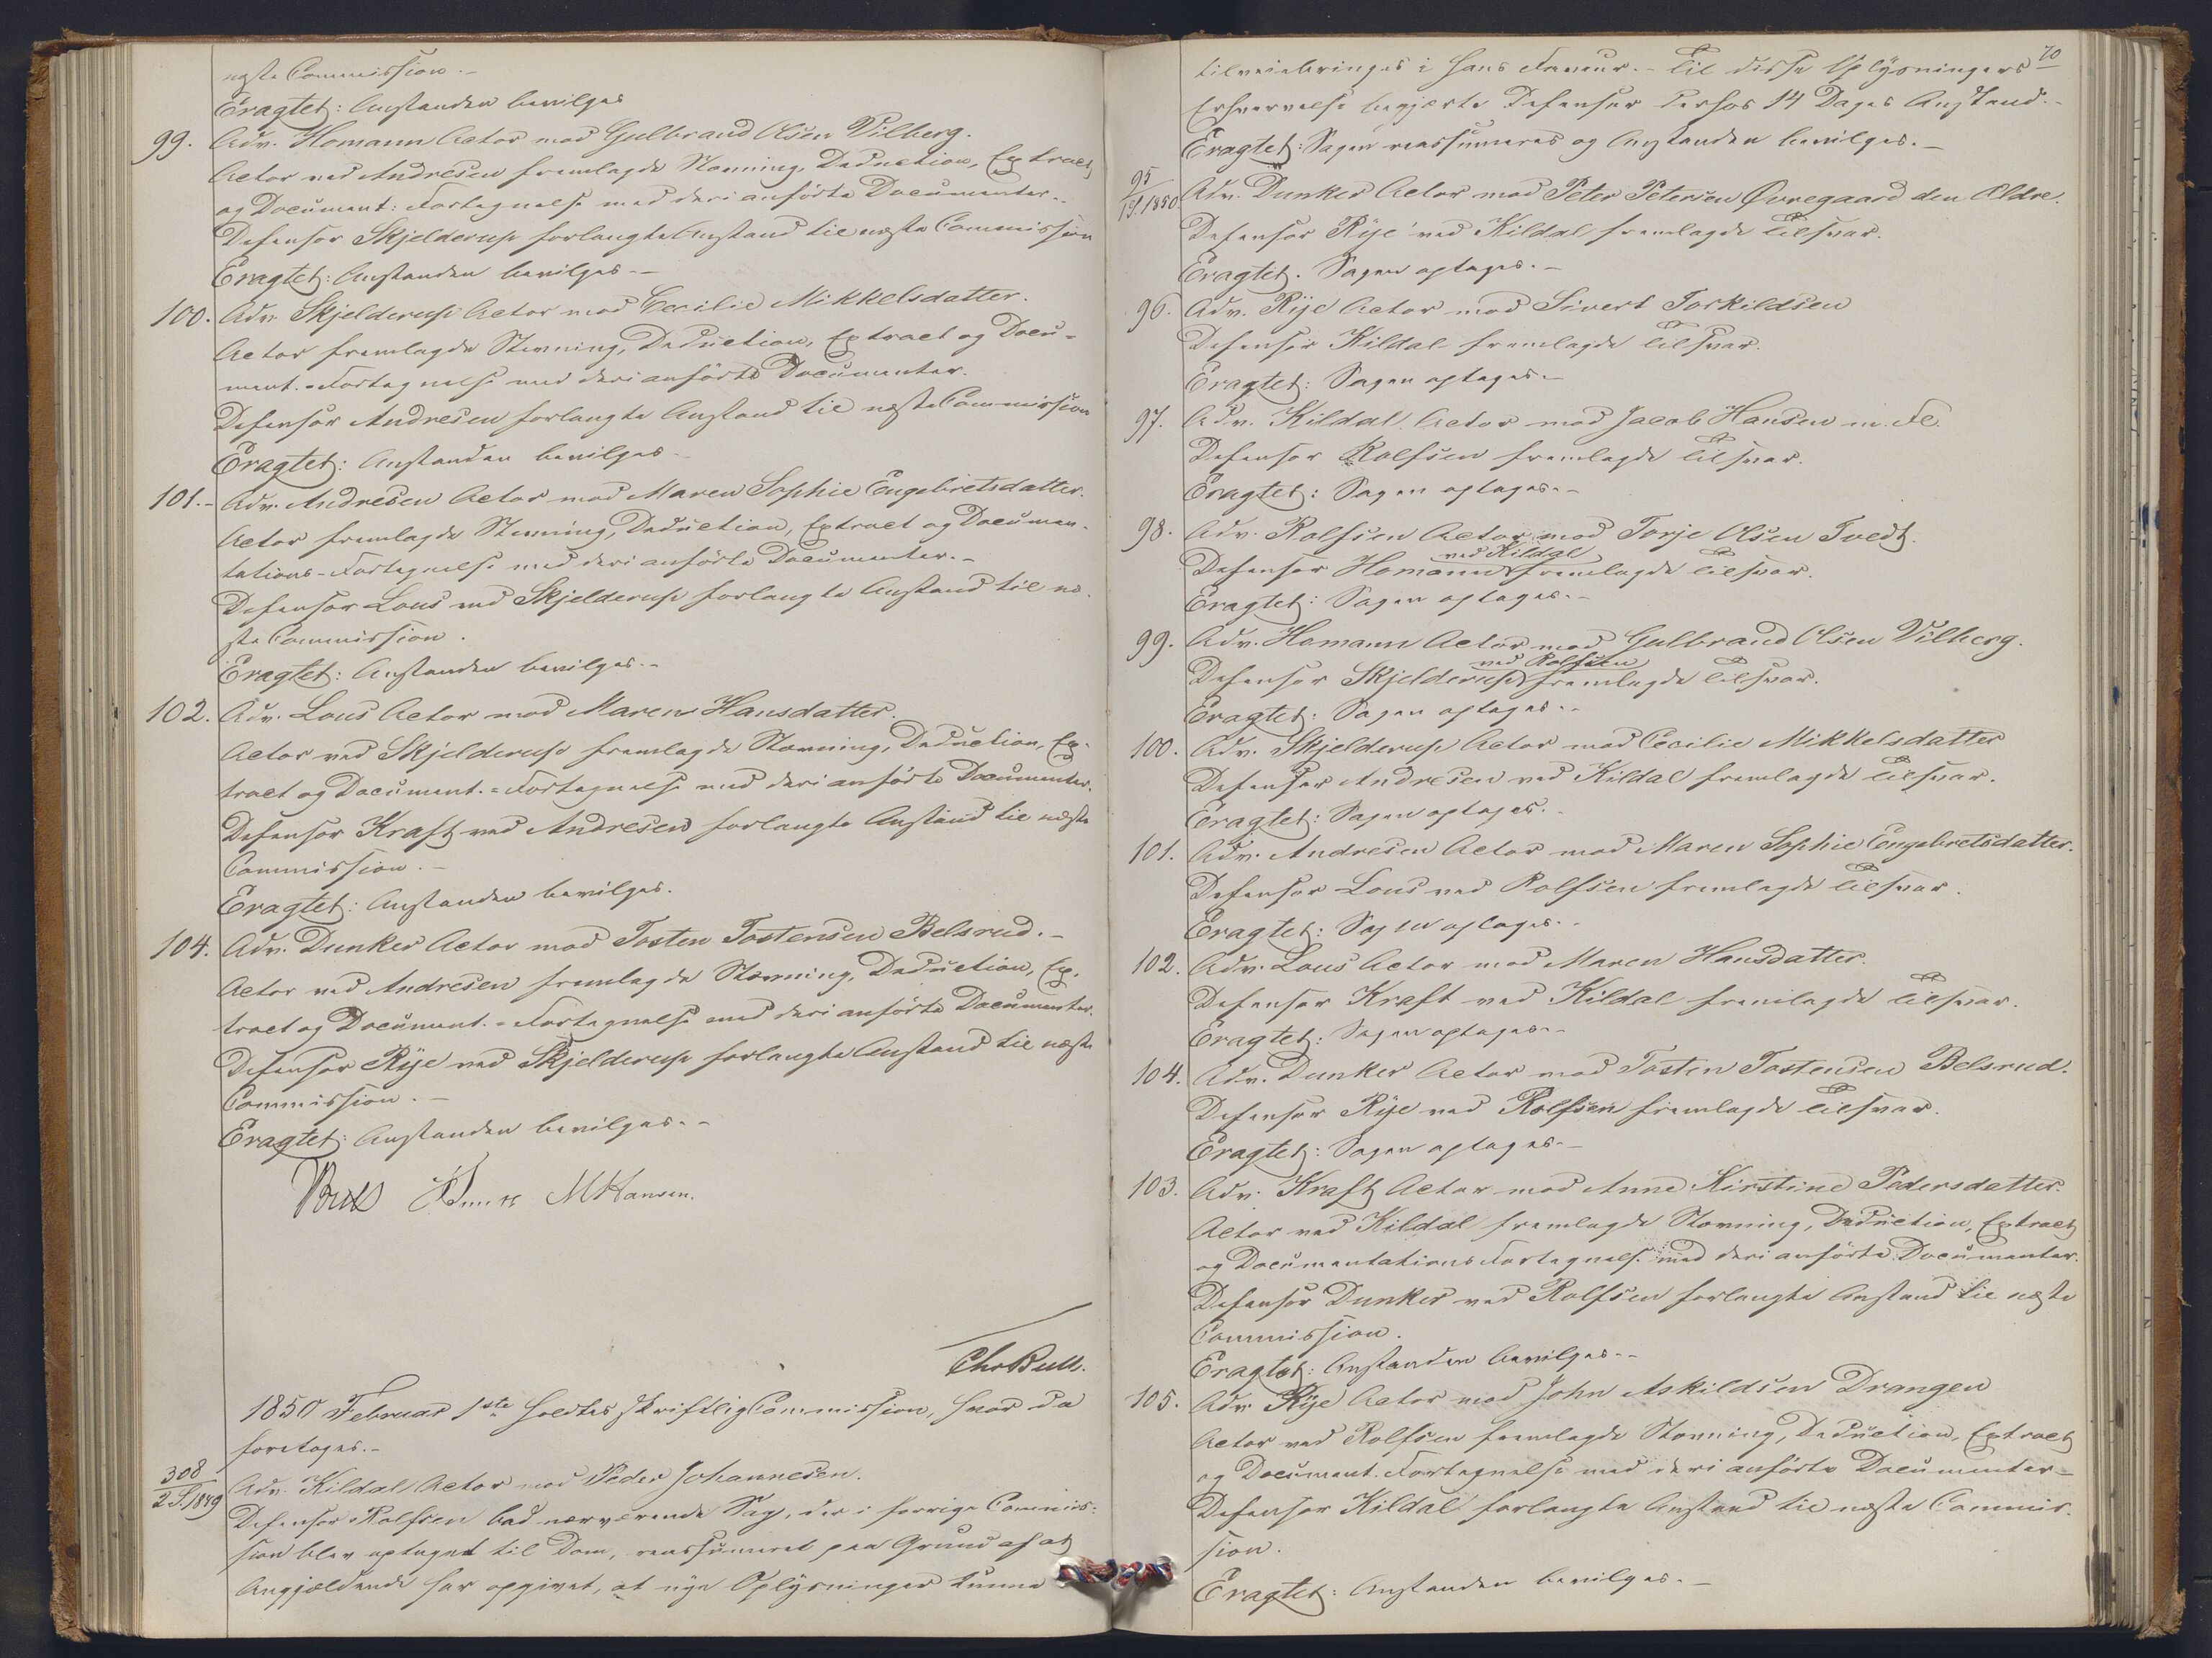 næste Commission.-
Eragtet: Anstanden bevilges
99. Adv. Homann Actor mod Gulbrand Olsen Vilberg.
Actor ved Andresen fremlagde Stevning, Deduction, Extract
og Document: Fortegnelse med deri anførte Documenter.-
Defensor Skjelderup forlangte Anstand til næste Commission
Eragtet: Anstanden bevilges.-
100. Adv. Skjelderup Actor mod Cecilie Mikkelsdatter.
Actor fremlagde Stevning, Deduction, Extract og Docu-
ment.-Fortegnelse med deri anførte Documenter.
Defensor Andresen forlangte Anstand til næste Commission
Eragtet: Anstanden bevilges.-
101.- Adv. Andresen Actor mod Maren Sophie Engebretsdatter.
Actor fremlagde Stevning, Deduction, Extract og Documen-
tations-Fortegnelse med deri anførte Documenter.-
Defensor Lous ved Skjelderup forlangte Anstand til næ-
ste Commission.
Eragtet: Anstanden bevilges.-
102. Adv. Lous Actor mod Maren Hansdatter.
Actor ved Skjelderup fremlagde Stevning, Deduction, Ex-
tract og Document.-Fortegnelse med deri anførte Documenter.
Defensor Kraft ved Andresen forlangte Anstand til næste
Commission.-
Eragtet: Anstanden bevilges.
104. Adv. Dunker Actor mod Tosten Tostensen Belsrud.-
Actor ved Andresen fremlagde Stevning, Deduction, Ex-
tract og Document.-Fortegnelse med deri anførte Documenter.
Defensor Rije ved Skjelderup forlangte Anstand til næste
Commission.-
Eragtet: Anstanden bevilges.-
Bull MHansen.
Chr Bull.
1850 Februar 1ste holdtes skriftlig Commission, hvor da
foretoges.-
308/2 S. 1849 Adv. Kildal Actor mod Peder Johannesen.
Defensor Rolfsen bad nærværende Sag, der i forrige Commis-
sion blev optaget til Dom, reassumeret paa Grund af at
Angjældende har opgivet, at nye Oplysninger kunne
70
tilveiebringes i hans Faveur.- Til disse Oplysningers
Erhvervelse begjærte Defensor derhos 14 Dages Anstand.-
Eragtet: Sagen reassumeres og Anstanden bevilges.-
95/1 S. 1850 Adv. Dunker Actor mod Peter Petersen Øvregaard den Ældre.
Defensor Rije ved Kildal fremlagde Tilsvar.
Eragtet. Sagen optages.-
96. Adv. Rije Actor mod Sivert Torkildsen
Defensor Kildal fremlagde Tilsvar.
Eragtet: Sagen optages.-
97. Adv. Kildal Actor mod Jacob Hansen m. Fl.
Defensor Rolfsen fremlagde Tilsvar.
Eragtet: Sagen optages.-
98. Adv. Rolfsen Actor mod Torje Olsen Tvedt.
Defensor Homann ved Kildal fremlagde Tilsvar.
Eragtet: Sagen optages.-
99. Adv. Homann Actor mod Gulbrand Olsen Vilberg.
Defensor Skjelderup ved Rolfsen fremlagde Tilsvar.
Eragtet: Sagen optages.-
100. Adv. Skjelderup Actor mod Cecilie Mikkelsdatter
Defensor Andresen ved Kildal fremlagde Tilsvar.
Eragtet: Sagen optages.-
101. Adv. Andresen Actor mod Maren Sophie Engebretsdatter.
Defensor Lous ved Rolfsen fremlagde Tilsvar.
Eragtet: Sagen optages.-
102. Adv. Lous Actor mod Maren Hansdatter.
Defensor Kraft ved Kildal fremlagde Tilsvar.
Eragtet: Sagen optages.-
104. Adv. Dunker Actor mod Tosten Tostensen Belsrud.
Defensor Rije ved Rolfsen fremlagde Tilsvar.
Eragtet: Sagen optages.-
103. Adv. Kraft Actor mod Anne Kirstine Pedersdatter.
Actor ved Kildal fremlagde Stevning, Deduction, Extract
og Documentations Fortegnelse med deri anførte Documenter.
Defensor Dunker ved Rolfsen forlangte Anstand til næste
Commission.
Eragtet: Anstanden bevilges.-
105. Adv. Rije Actor mod John Askildsen Drangen
Actor ved Rolfsen fremlagde Stevning, Deduction, Extract
og Document. Fortegnelse med deri anførte Documenter-
Defensor Kildal forlangte Anstand til næste Commis-
sion.
Eragtet: Anstanden bevilges.-